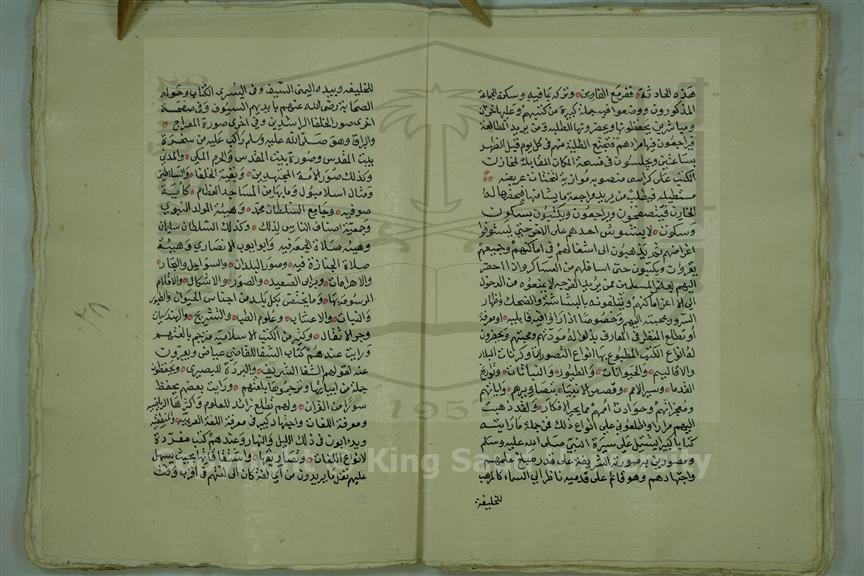 هذه الحادثة ففرقع القارين وتركه يافيه وسكنه الجماعة
المذكورون ووضعوا فيه جملة كبيرة من كتبهم وعليها خزان
ومباشرين يحفظونها ويحضرونها للطلبة ومن يريد المطالعة
فيراجعون فيها مرادهم فتجتمع الطلبة منهم في كل يوم قبل الظهر
بساعتين ويجلسون في فسحة المكان المقابلة لمخازن
الكتب على كراسي منصوبه موازية لتختات عريضه
مستطيله فيطلب من يريد المراجعة ما يشا منها فيحضرها له
الخازن فيتصفحون ويراجعون ويكتبون بسكوت
وسكون لا يشوش احدهم على الاخر حتى يستوفوا
اغراضهم ثم يذهبون الى اشغالهم في اماكنهم وجميعهم
يقرون ويكتبون حتى اسافلهم من العساكر واذا حضر
اليهم بعض المسلمين ممن يريد الفرجه لا يمنعونه من الدخول
الى الاعز اماكنهم ويتلقونه بالبشاشة والضحك واظهار
السرور بمجيئه اليهم وخصوصا اذا راوا فيه قابليه او معرفة
او تطلع للنظر في المعارف بذلوا له مودتهم ومحبتهم ويحضرون
له انواع الكتب المطبوع بها انواع التصورات وكرات البلاد
والاقاليم والحيوانات والطيور والنباتات وتواريخ
القدما وسير الامم وقصص الانبيا بتصاويرهم واياتهم
ومعجزاتهم وحوادث اممهم مما يحير الافكار ولقد ذهبت
اليهم مرارا واطلعوني على انواع ذلك فمن جملة ما رايته
كتابا كبيرا يشتمل على سيرة النبي صلى الله عليه وسلم
ومصورين به صورته الشريفة على قدر مبلغ علمهم
واجتهادهم وهو قائم على قدميه ناظرا الى السماء كالمرهب
للخليقة
للخليقه وبيده اليمنى السيف وفي اليسرى الكتاب وحوله
الصحابة رضي الله عنهم بايديهم السيوف وفي صفحة
اخرى صور الخلفا الراشدين وفي اخرى صورة المعراج
والبراق وهو صلى الله عليه وسلم راكب عليه من صخرة
بيت المقدس وصورة بيت المقدس والحرم المكي والمدني
وكذلك صور الائمة المجتهدين وبقية الخلفا والسلاطين
ومثال اسلامبول وما بها من المساجد العظام كاية
صوفيه وجامع السلطان محمد وهيئة المولد النبوي
وجمعية اصناف الناس لذلك وكذلك السلطان سليمان
وهيئة صلاة الجمعة فيه وابو ايوب الانصاري وهيئة
صلاة الجنازة فيه وصور البلدان والسواحل والبحار
والاهرامات وبرابي الصعيد والصور والاشكال والاقلام
المرسومة بها وما يختص بكل بلد من اجناس الحيوان والطيور
والنبات والاعشاب وعلوم الطب والتشريح والهندسيات
وجر الاثقال وكثير من الكتب الاسلامية مترجم بلغتهم
ورايت عندهم كتاب الشفا للقاضي عياض ويعبرون
عنه لقولهم الشفا الشريف والبردة للبصيري ويحفظون
جملة من ابياتها وترجموها بلغتهم ورايت بعضهم يحفظ
سورا من القران ولهم تطلع زائد للعلوم واكثرها الرياضية
ومعرفة اللغات واجتهاد كبير في معرفة اللغة العربية والمنطق
ويدابون في ذلك الليل والنهار وعندهم كتب مفردة
لانواع اللغات وتصاريفها واشتقاقاتها بحيث يسهل
عليهم نقل ما يريدون من اي لغة كان الى لغتهم في اقرب وقت